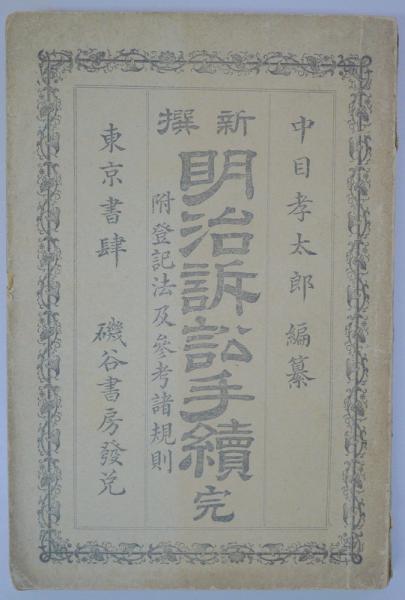 中目孝太郎 編纂
新撰
明治訴訟手續 完
附登記法及參考諸規則
東京書肆 磯谷書房發兌